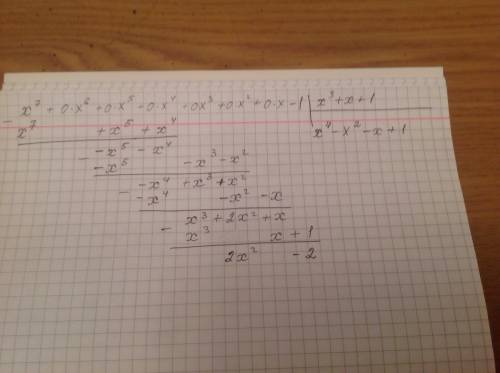 - x⁷ + 0·x⁶ + 0·x⁵ + 0·x⁴ + 0x³ + 0x² + 0·x - 1 | x³ + x + 1
x⁷ + x⁵ + x⁴ | x⁴ - x² - x + 1
- - x⁵ - x⁴
- x⁵ - x³ - x²
- - x⁴ + x³ + x²
- x⁴ - x² - x
- x³ + 2x² + x
x³ x + 1
2x² - 2